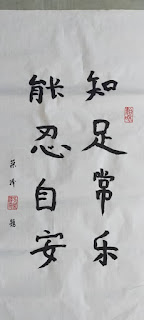 知足常乐
能忍自安